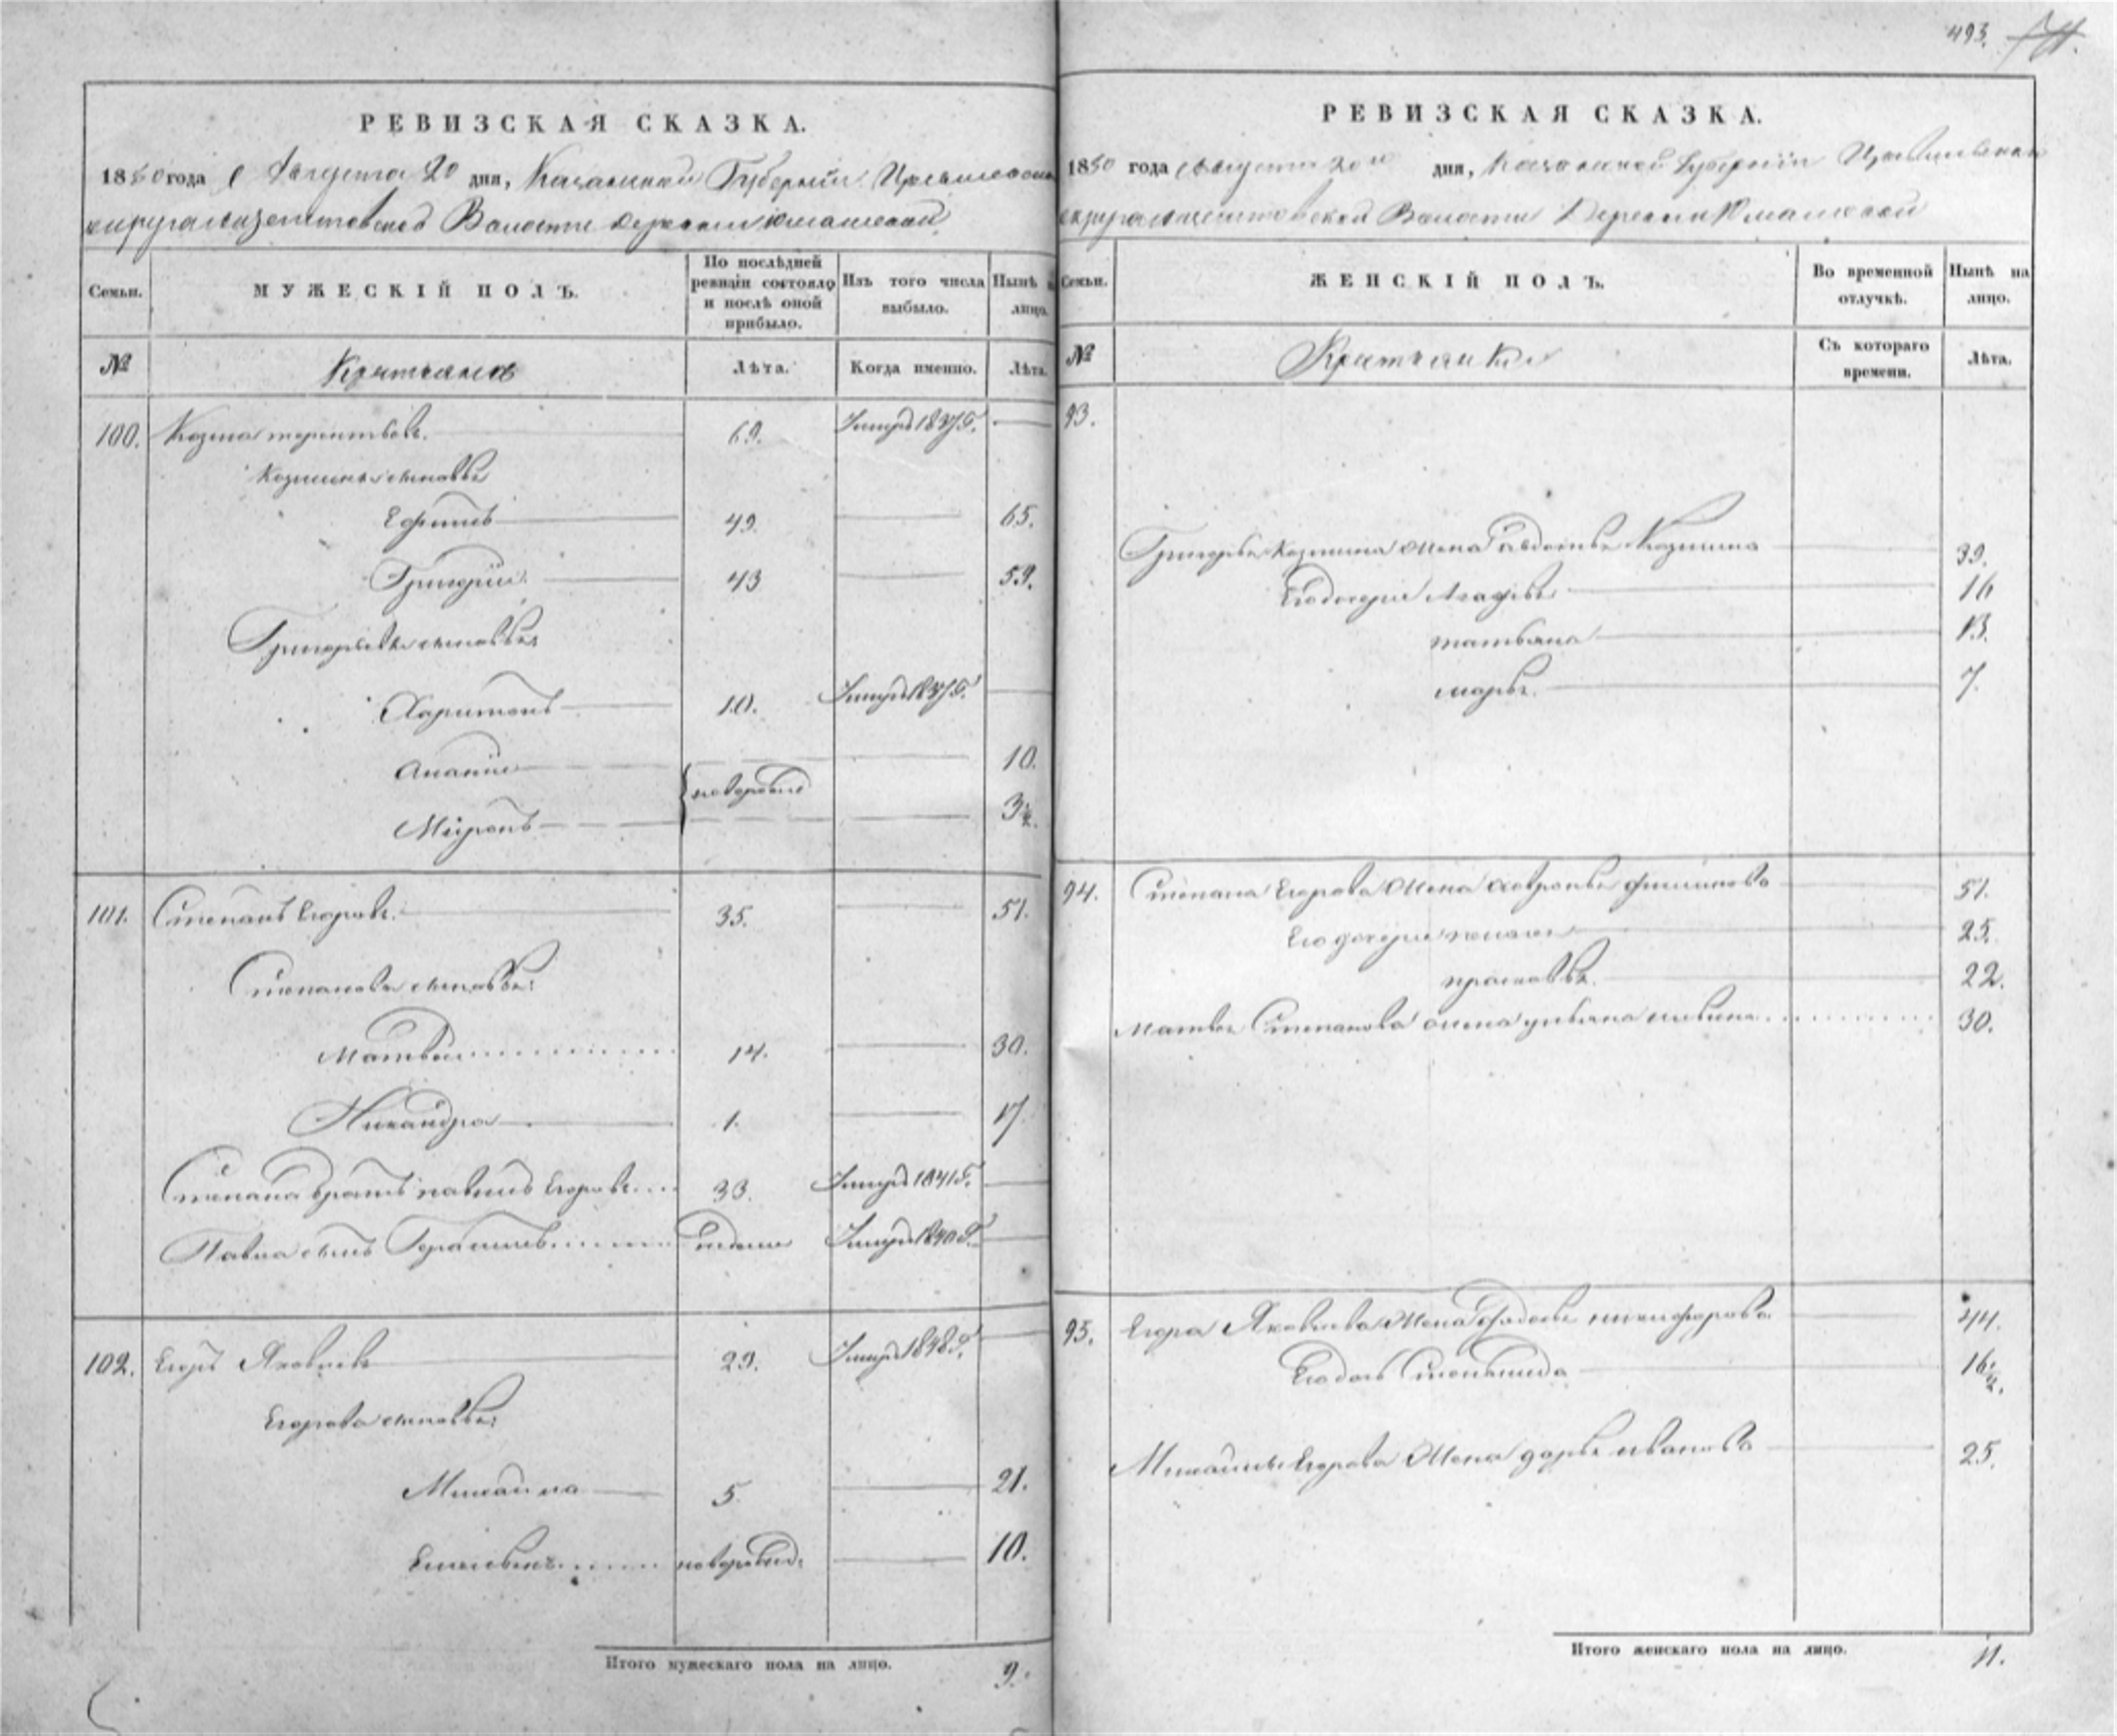 493.
РЕВИЗСКАЯ СКАЗКА.
1850 года Августа 20 дня, Казанской Губернии Цивильскаго
округа Волости Деревни Юмашевой
Семьи. МУЖЕСКІЙ ПОЛЪ. По послѣдней ревизіи состояло и послѣ оной прибыло. Изъ того числа выбыло. Нынѣ на лицо.
№ Крестьяне Лѣта. Когда именно. Лѣта.
100. Козма терентьевъ. 69. Умеръ 1837 Г.
Козмины сыновья
Ефимъ 49. 65.
Григорій 43 59.
Григорьевы сыновья:
Харитонъ 10. Умеръ 1837 Г.
Ананій 10.
новорожд
Миронъ 3½.
101. Степанъ Егоровъ. 35. 51.
Степановы сыновья:
Матвей 14. 30.
Никандра 1. 17
Степана братъ павелъ Егоровъ 33. Умеръ 1841 Г.
Павла сынъ Герасимъ Умеръ 1840 Г.
102. Егоръ Яковлевъ 29. Умеръ 1848 Г.
Егорова сыновья:
Михайла 5 21.
новорожд: 10.
Итого мужескаго пола на лицо. 9.
РЕВИЗСКАЯ СКАЗКА.
1850 года Августа 20го дня, Казанской Губерніи Цивильскаго
округа Волости Деревни Юмашевой
Семьи. ЖЕНСКІЙ ПОЛЪ. Во временной отлучкѣ. Нынѣ на лицо.
№ Крестьянки Съ котораго времени. Лѣта.
93.
Григорья Козмина Жена авдотья Козмина 39.
Его дочери Агафья 16
татьяна 13.
марья. 7.
94. Степана Егорова Жена филипова 51.
Его дочери 25.
прасковья. 22.
Матвея Степанова жена ульяна 30.
95. Егора Яковлева Жена никифорова 44.
Его дочь Степанида 16½.
Михайлы Егорова Жена дарья иванова 25.
Итого женскаго пола на лицо. 11.